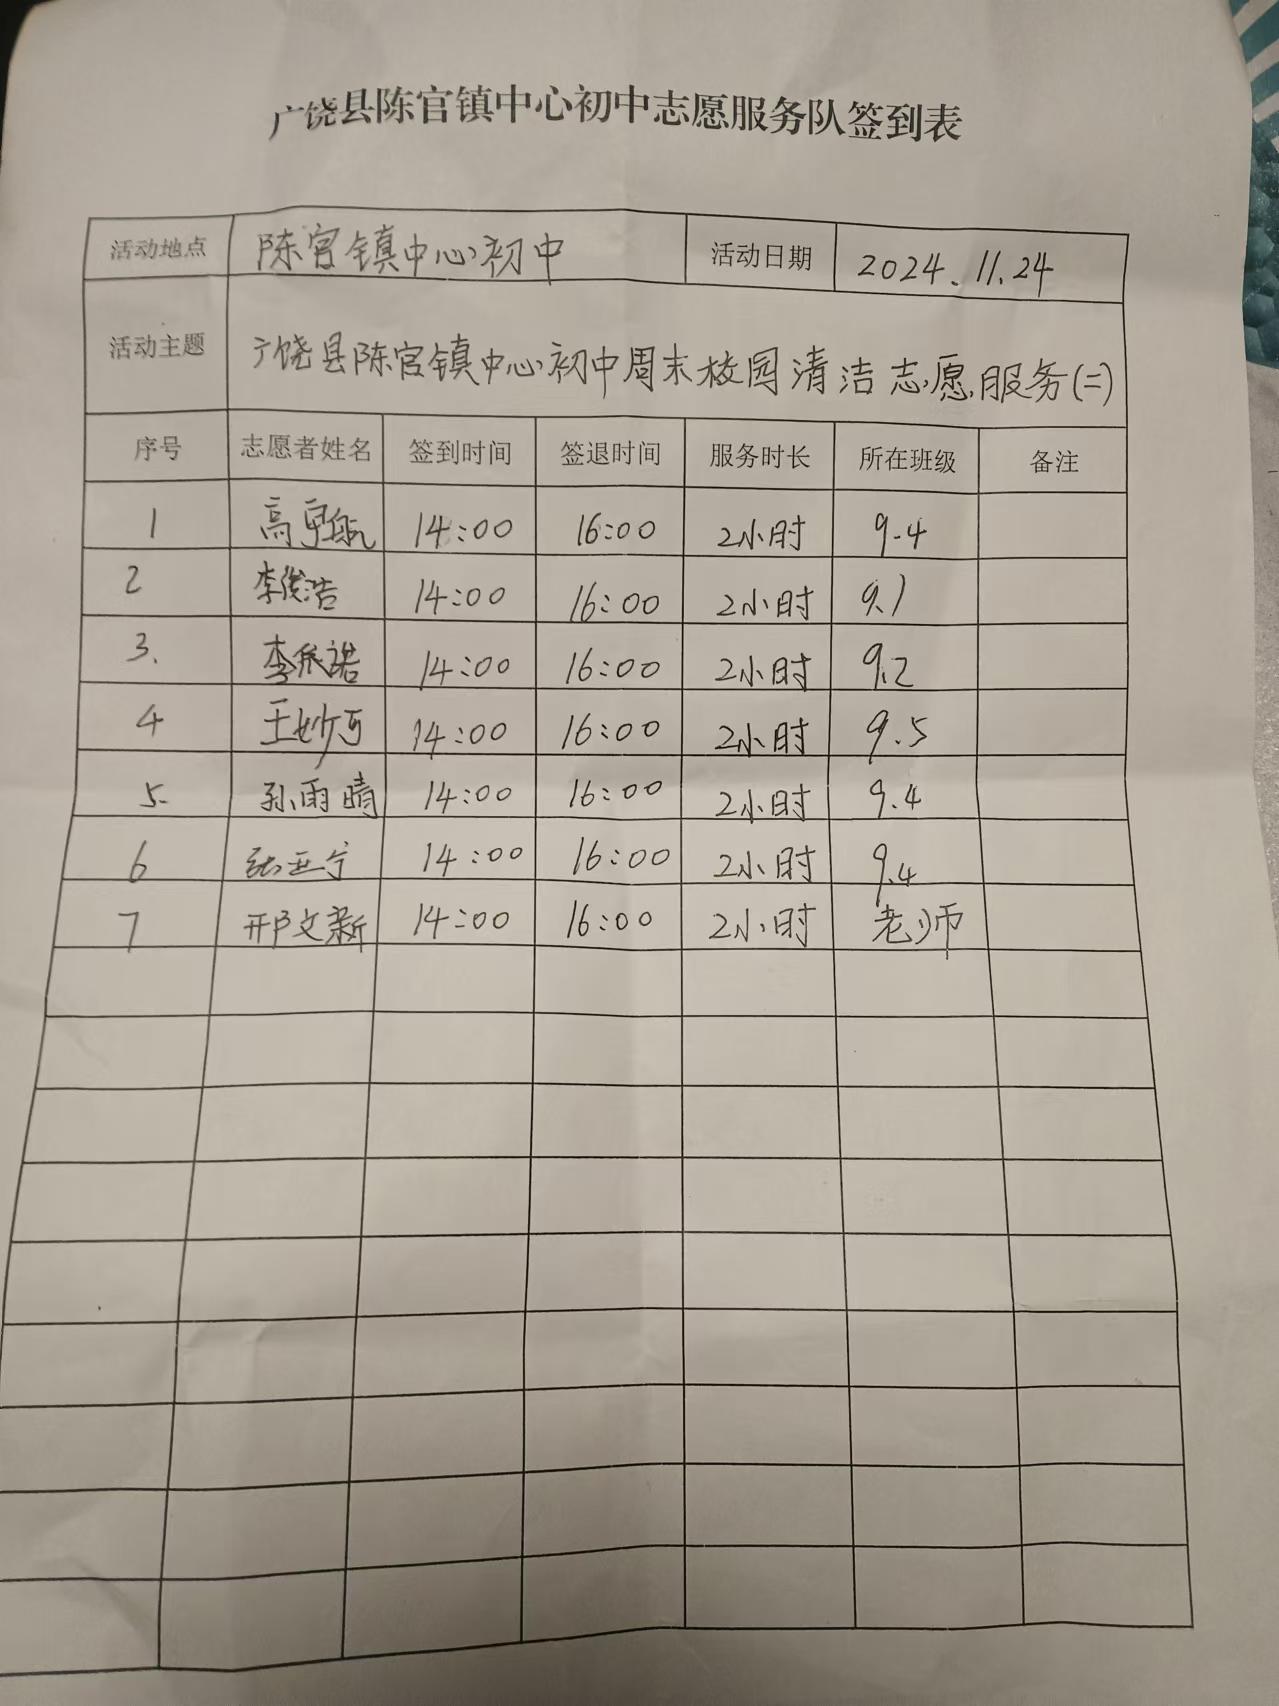 广饶县陈官镇中心初中志愿服务队签到表
活动地点 陈官镇中心初中 活动日期 2024.11.24
活动主题 广饶县陈官镇中心初中周末校园清洁志愿服务(二)
序号 志愿者姓名 签到时间 签退时间 服务时长 所在班级 备注
1 高 航 14:00 16:00 2小时 9.4
2 李俊浩 14:00 16:00 2小时 9.1
3. 李 诺 14:00 16:00 2小时 9.2
4 王妙可 14:00 16:00 2小时 9.5
5. 孙雨晴 14:00 16:00 2小时 9.4
6 张亚宁 14:00 16:00 2小时 9.4
7 邢文新 14:00 16:00 2小时 老师